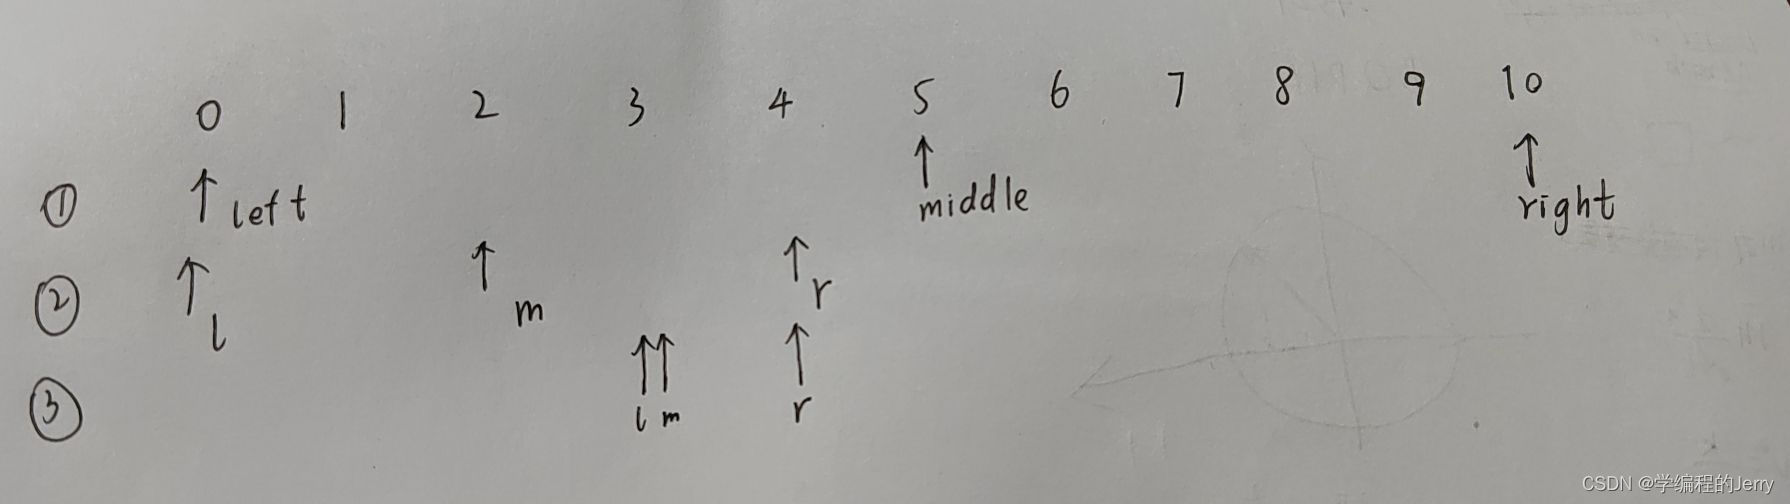 0 1 2 3 4 5 6 7 8 9 10
① left middle right
② l m r
③ l m r
CSDN @学编程的Jerry